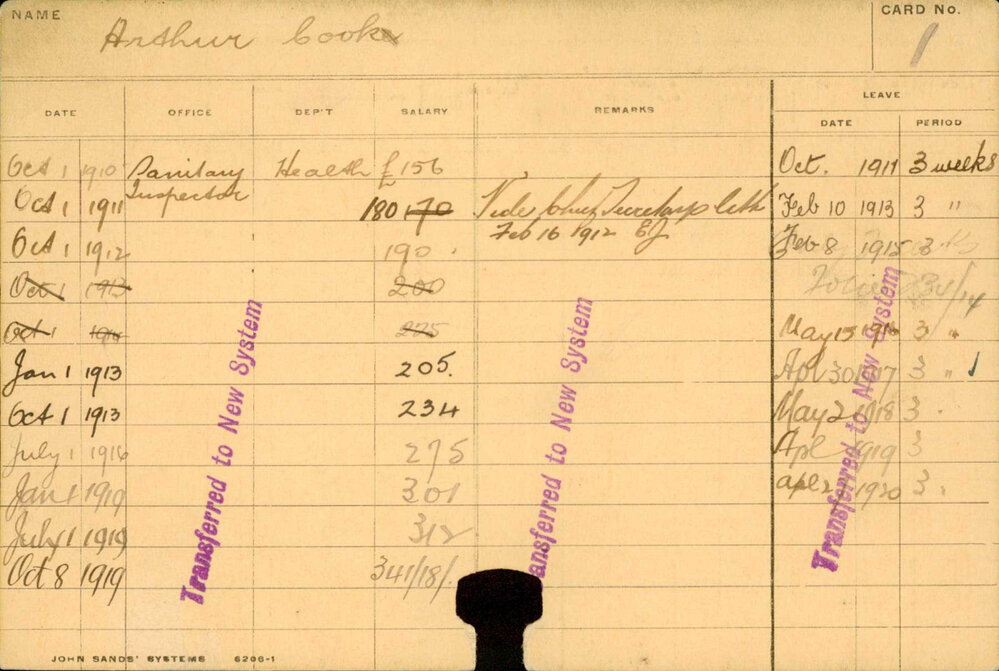 NAME
Arthur Cook
CARD No.
1
DATE OFFICE DEP'T SALARY REMARKS LEAVE
DATE PERIOD
Oct 1 1910 Sanitary Inspector Health £156 Oct. 1911 3 weeks
Oct 1 1911 180 170 Vide Chief Secretarys Feb 10 1913 3 "
Feb 16 1912 EJ
Oct 1 1912 190. Feb 8 1915 3
Oct 1 1913 200
Oct 1 225 May 15 1916 3 "
Jan 1 1913 205. Apl 30 1917 3 "
Oct 1 1913 234 May 2 1918 3
July 1 1916 275 Apl 1919 3
Jan 1 1919 301 Apl 2 1920 3
July 1 1919 312
Oct 8 1919 341/18/.
Transferred to New System
ansferred to New System
Transferred to New System
JOHN SANDS' SYSTEMS 6206-1